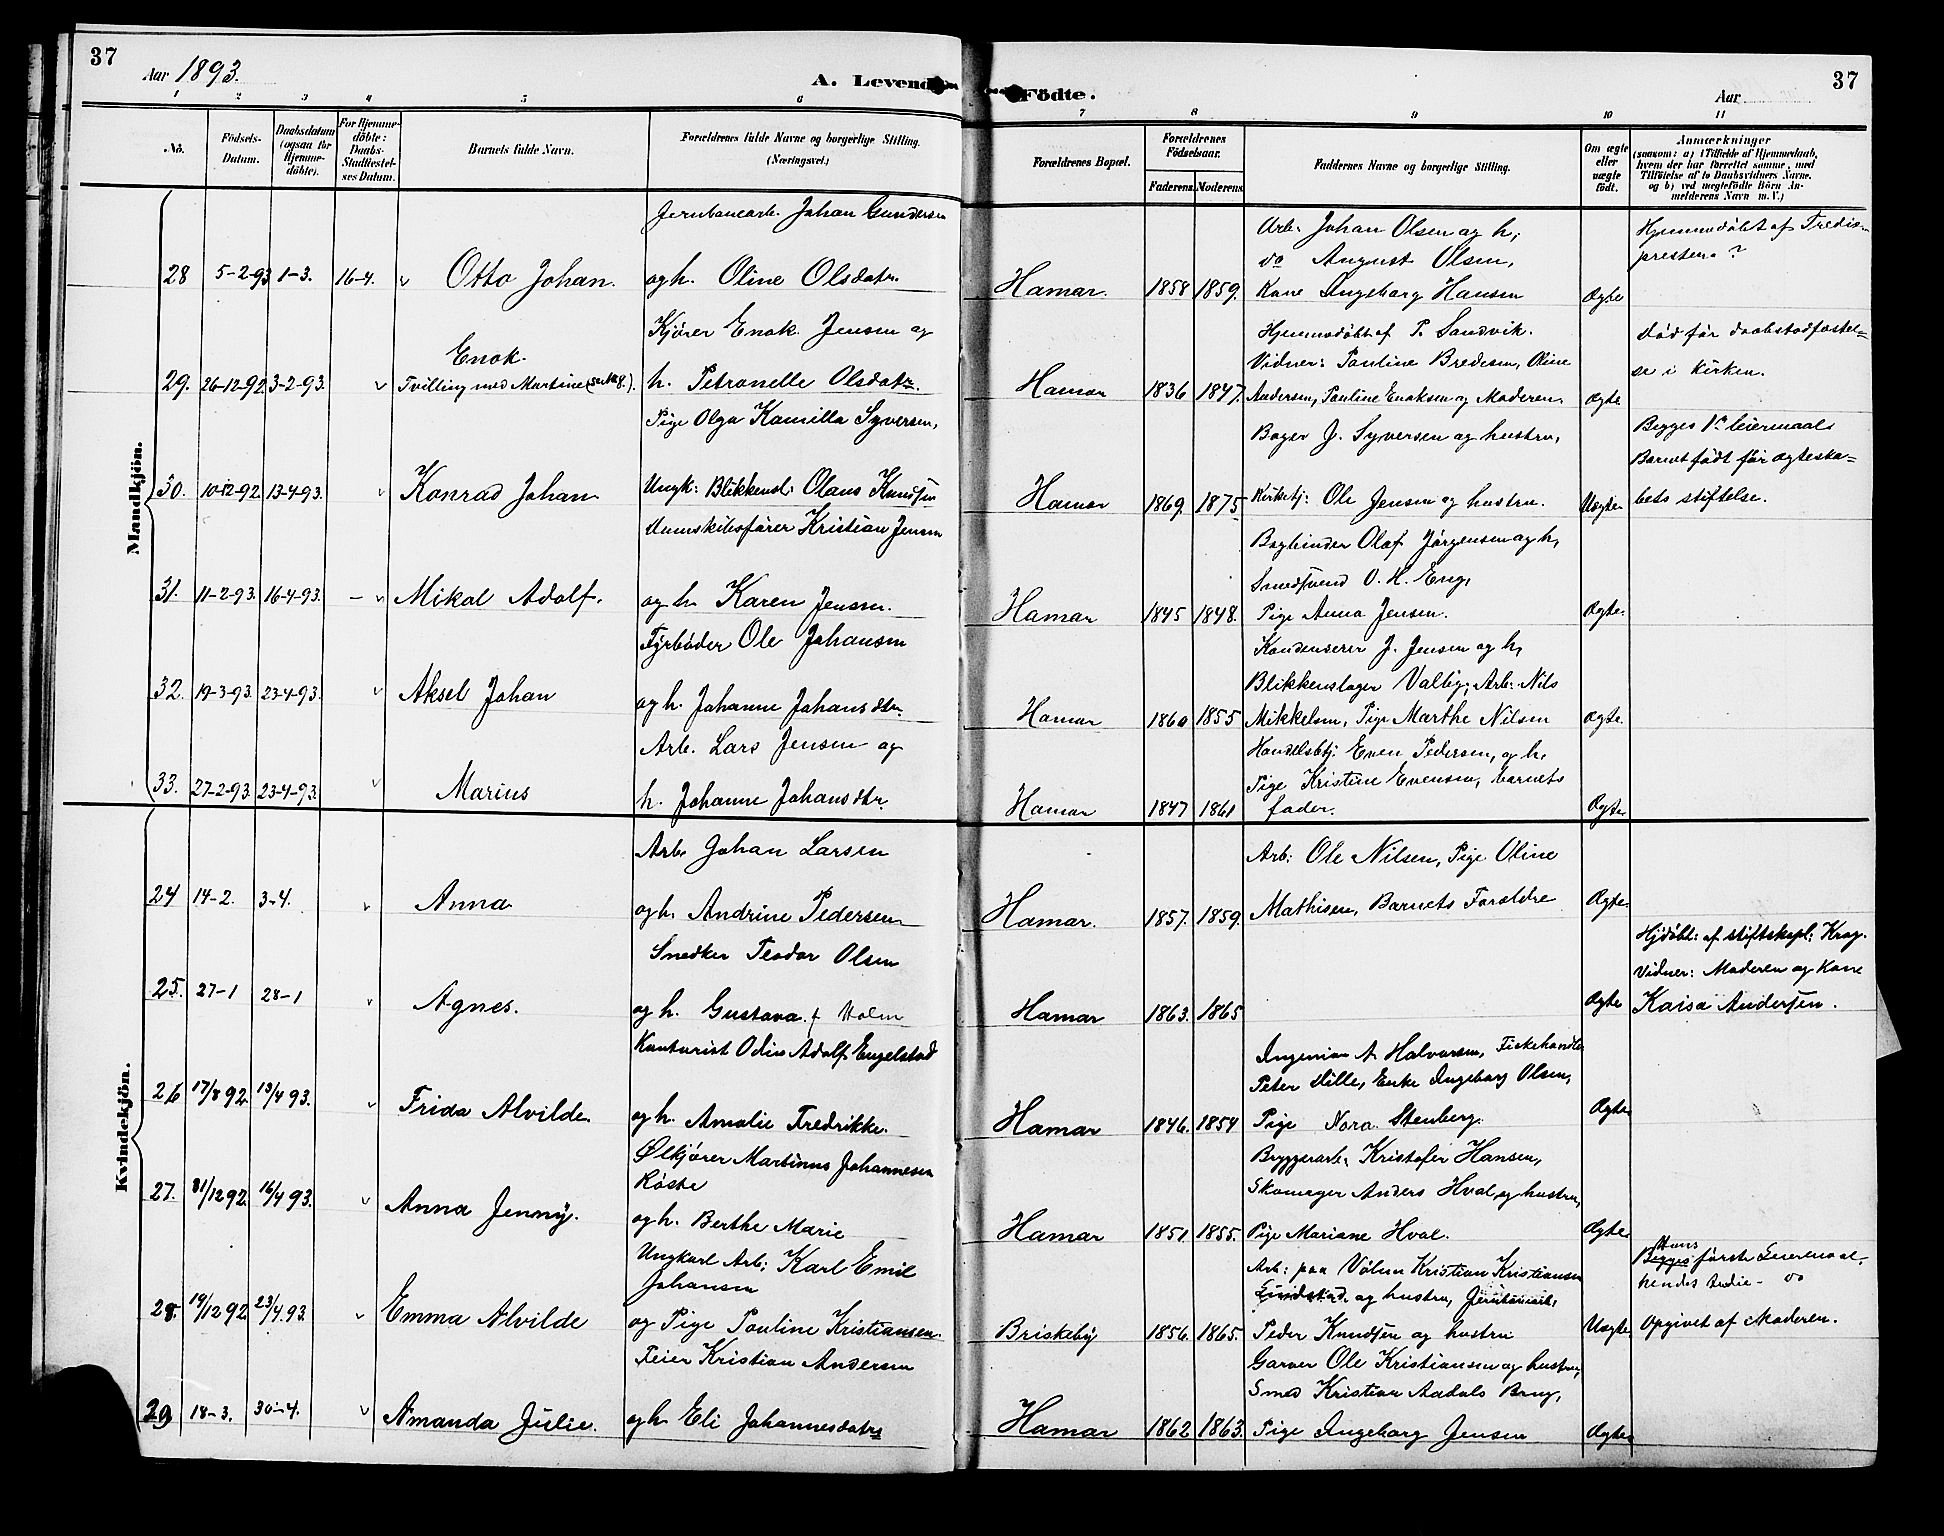 37
Aar 1893.
A. Levende
Födte.
Aar
37
1 2 3 4 5 6 7 8 9 10 11
No.
Födsels-
Datum.
Daabsdatum
(ogsaa for
Hjemme-
döbte).
For Hjemme-
döbte:
Daabs-
Stadfæstel-
ses Datum.
Barnets fulde Navn.
Forældrenes fulde Navne og borgerlige Stilling.
(Næringsvei.)
Forældrenes Bopæl.
Forældrenes
Födselsaar.
Faderens. Moderens.
Faddernes Navne og borgerlige Stilling.
Om ægte
eller
uægte
födt.
Anmærkninger
(saasom: a) i Tilfælde af Hjemmedaab,
hvem der har forrettet samme, med
Tilföielse af to Daabsvidners Navne,
og b) ved uægtefödte Börn An-
melderens Navn m. V.)
Mandkjön.
Jernbanearb. Johan Gundersen
28 5-2-93 1-3. 16-4. Otto Johan. og h. Oline Olsdatr.
Hamar. 1858 1859.
Arb. Johan Olsen og h,
do August Olsen,
Kone Ingeborg Hansen
Ægte
Hjemmedøbt af
presten?
Kjører Enok Jensen og
29. 26-12-92 3-2-93. Enok.
Tvilling med Martine (se No 8.)
h. Petronelle Olsdatr.
Hamar 1836 1847.
Hjemmedøbt af P. Sandvik.
Vidner: Pauline Bredesen, Oline
Andersen, Pauline Enoksen og Moderen.
Ægte
død før daabstadfæstel-
se i kirken.
Pige Olga Kamilla Syversen,
30. 10-12-92 13-4-93. Konrad Johan Ungk: Blikkensl: Olaus Knudsen
Hamar 1869 1875
Bager J. Syversen og hustru,
Kirketj: Ole Jensen og hustru.
Uægte
Begges 1ste leiermaal
Barnet født før ægteska-
bets stiftelse.
Damskibsfører Kristian Jensen
31. 11-2-93. 16-4-93. - Mikal Adolf. og h. Karen Jensen.
Hamar 1845 1848.
Bogbinder Olaf Jørgensen og h,
Smedsvend O. H. Eng,
Pige Anna Jensen.
Ægte.
Fyrbøder Ole Johansen
32. 19-3-93. 23-4-93. Aksel Johan og h. Johanne Johansdtr.
Hamar 1860 1855
Kondenserer J. Jensen og h,
Blikkenslager Valby, Arb: Nils
Mikkelsen, Pige Marthe Nilsen
Ægte.
Arb. Lars Jensen og
33. 27-2-93. 23-4-93. Marius h. Johanne Johansdtr.
Hamar 1847 1861
Handelsbtj: Even Pedersen, og h,
Pige Kristine Evensen, barnets
fader.
Ægte
Kvindekjön.
Arb. Johan Larsen
24 14-2. 3-4. Anna og h. Andrine Pedersen
Hamar. 1857. 1859.
Arb: Ole Nilsen, Pige Oline
Mathisen, Barnets Forældre
Ægte
Snedker Teodor Olsen
25. 27-1 28-1 Agnes. og h. Gustava f. Holm
Hamar 1863. 1865
Ægte
Hjdøbt: af stiftskapl: Krag.
Vidner: Moderen og Kone
Kaisa Andersen.
Kontorist Odin Adolf Engelstad
26 17/8 92. 13/4 93. Frida Alvilde. og h. Amalie Fredrikke.
Hamar 1846. 1854
Ingeniør A. Halvorsen, Fiskehandler
Peter Lille, Enke Ingeborg Olsen,
Pige Nora Stenberg.
Ægte
Ølkjører Martinus Johannesen
Røste
27. 31/12 92. 16/4 93. Anna Jenny. og h. Berthe Marie
Hamar 1851. 1855.
Bryggerarb. Kristofer Hansen,
Skomager Anders Hval, og hustru,
Pige Mariane Hval.
Ægte
Ungkarl Arb: Karl Emil
Johansen
28. 19/12 92. 23/4.93. Emma Alvilde og Pige Pauline Kristiansen.
Briskeby 1856. 1865.
Arb: paa Vølun Kristian Kristiansen
Lundstad og hustru, Jernbanearb.
Peder Knudsen og hustru
Uægte
Hans
Begges første Leiermaal,
hendes tredie - do
Opgivet af Moderen.
Feier Kristian Andersen
29 18-3. 30-4. Amanda Julie. og h. Eli Johannesdatr
Hamar 1862 1863.
Garver Ole Kristiansen og hustru,
Smed Kristian Aadals Brug,
Pige Ingeborg Jensen
Ægte